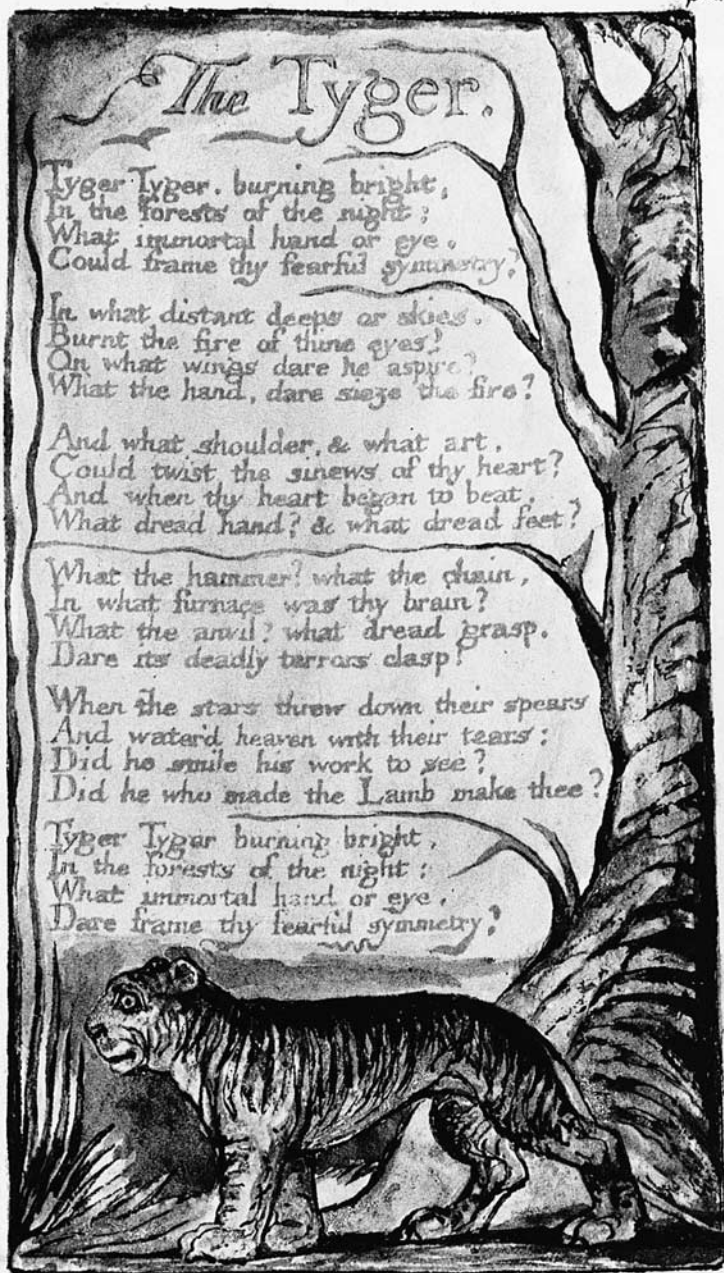 The Tyger.
Tyger Tyger. burning bright,
In the forests of the night;
What immortal hand or eye.
Could frame thy fearful symmetry?
In what distant deeps or skies.
Burnt the fire of thine eyes?
On what wings dare he aspire?
What the hand, dare sieze the fire?
And what shoulder, & what art,
Could twist the sinews of thy heart?
And when thy heart began to beat,
What dread hand? & what dread feet?
What the hammer? what the chain,
In what furnace was thy brain?
What the anvil? what dread grasp.
Dare its deadly terrors clasp?
When the stars threw down their spears
And water'd heaven with their tears:
Did he smile his work to see?
Did he who made the Lamb make thee?
Tyger Tyger burning bright,
In the forests of the night:
What immortal hand or eye,
Dare frame thy fearful symmetry?